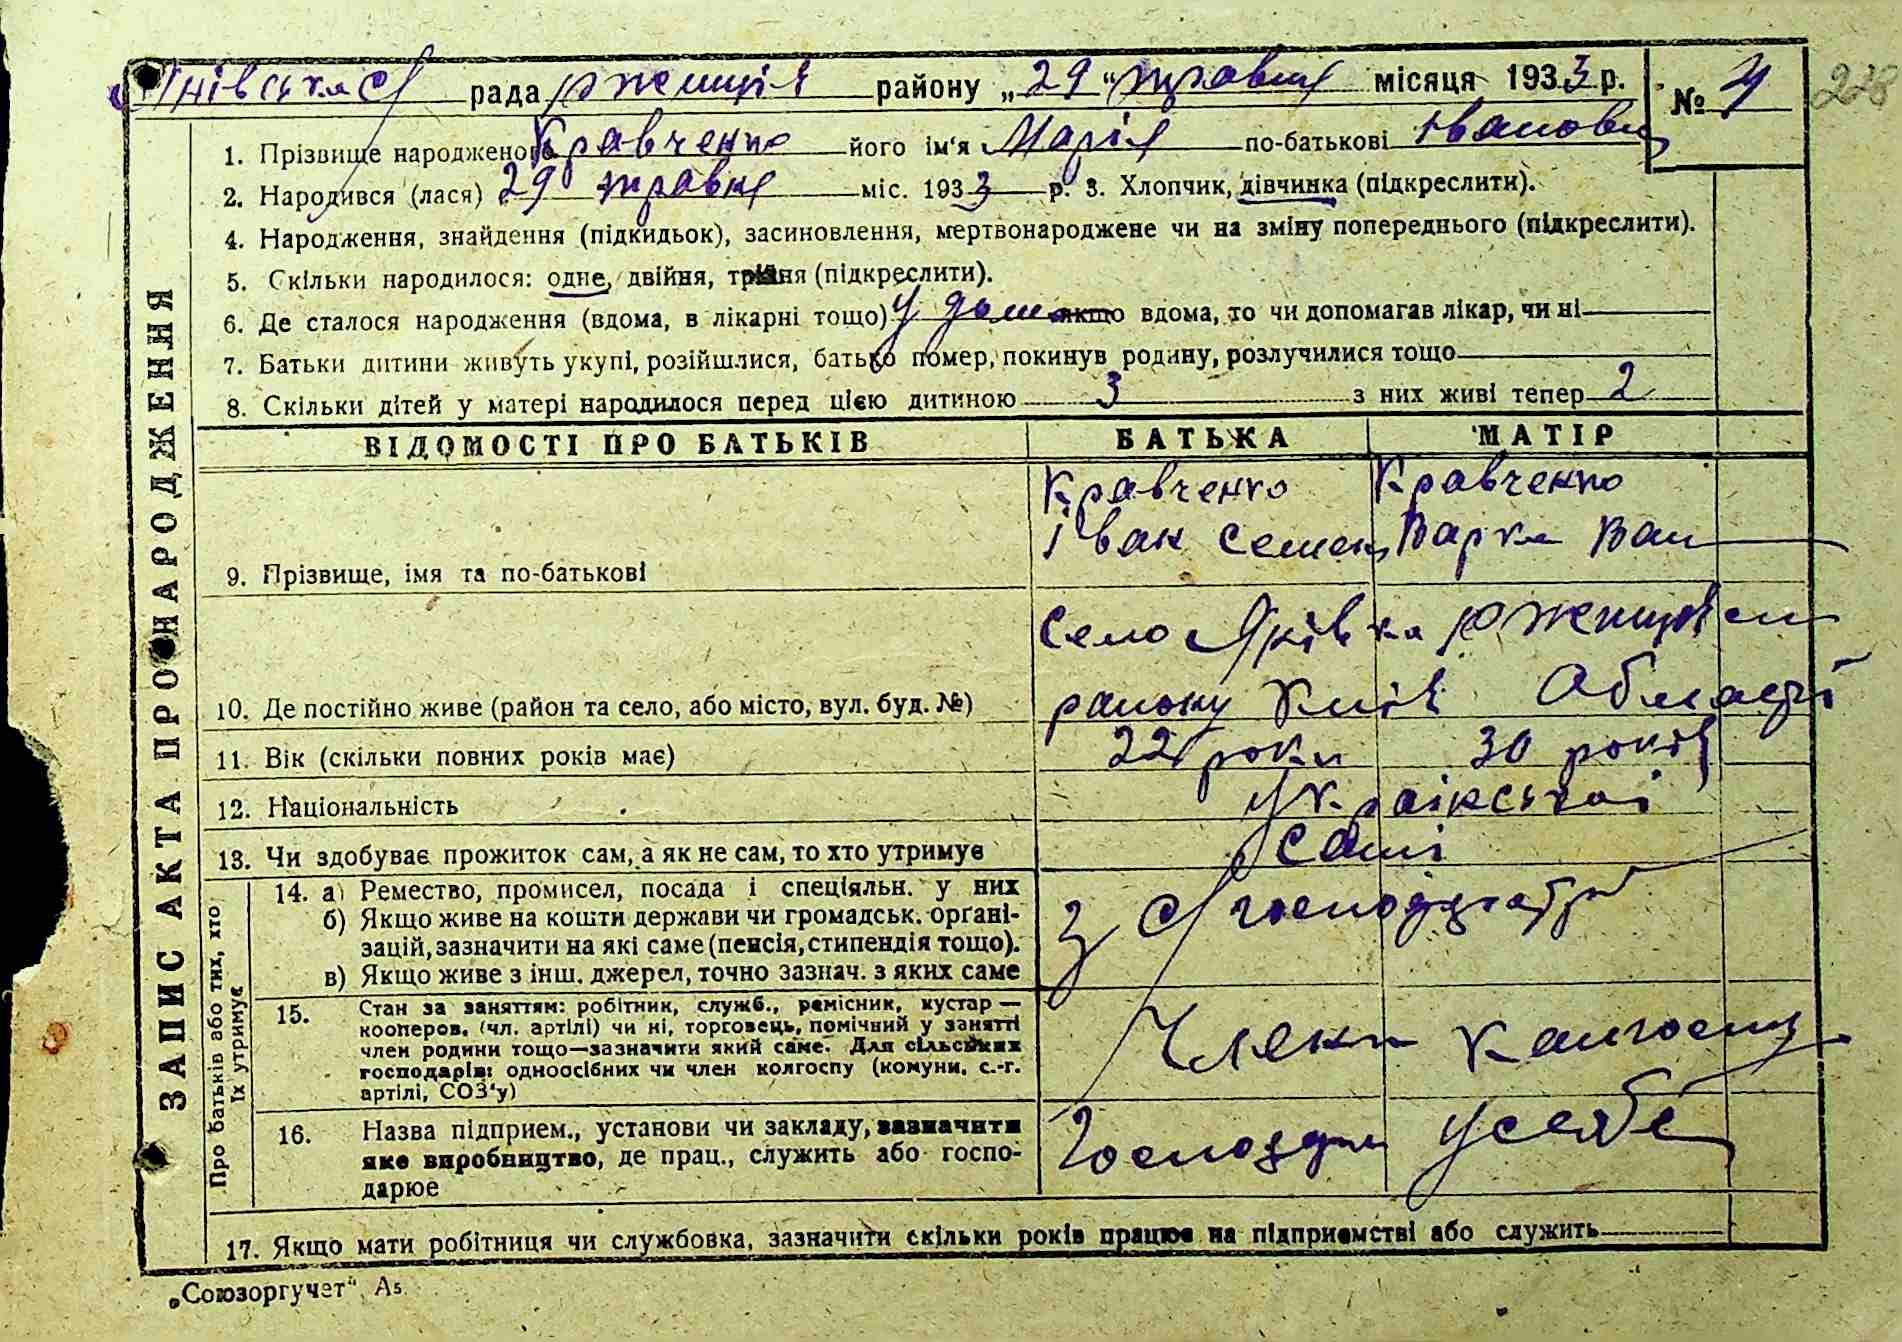 рада району „29“ травня місяця 1933 р. № 4
228
1. Прізвище народженого Кравченко його ім'я Марія по-батькові Івановна
2. Народився (лася) 29 травня міс. 1933 р. 3. Хлопчик, дівчинка (підкреслити).
4. Народження, знайдення (підкидьок), засиновлення, мертвонароджене чи на зміну попереднього (підкреслити).
5. Скільки народилося: одне, двійня, трійня (підкреслити).
6. Де сталося народження (вдома, в лікарні тощо) у дома якщо вдома, то чи допомагав лікар, чи ні
7. Батьки дитини живуть укупі, розійшлися, батько помер, покинув родину, розлучилися тощо
8. Скільки дітей у матері народилося перед цією дитиною 3 з них живі тепер 2
ЗАПИС АКТА ПРО НАРОДЖЕННЯ
ВІДОМОСТІ ПРО БАТЬКІВ БАТЬКА МАТІР
Кравченко Кравченко
Іван Семен Варка Ван
9. Прізвище, імя та по-батькові
село Яківка
10. Де постійно живе (район та село, або місто, вул. буд. №) району Київ Області
11. Вік (скільки повних років має) 22 роки 30 років
12. Національність українські
13. Чи здобуває прожиток сам, а як не сам, то хто утримує самі
Про батьків або тих, хто їх утримує
14. а) Ремество, промисел, посада і спеціяльн. у них
б) Якщо живе на кошти держави чи громадськ. орґані-
зацій, зазначити на які саме (пенсія, стипендія тощо).
в) Якщо живе з інш. джерел, точно зазнач. з яких саме
з с/господарства
15. Стан за заняттям: робітник, служб., ремісник, кустар —
кооперов. (чл. артілі) чи ні, торговець, помічний у занятті
член родини тощо—зазначити який саме. Для сільських
господарів: одноосібних чи член колгоспу (комуни, с.-г.
артілі, СОЗ'у)
Члени калгоспу
16. Назва підприєм., установи чи закладу, зазначити
яке виробництво, де прац., служить або госпо-
дарює
у себе
17. Якщо мати робітниця чи службовка, зазначити скільки років працює на підприємстві або служить
„Союзоргучет“ А5